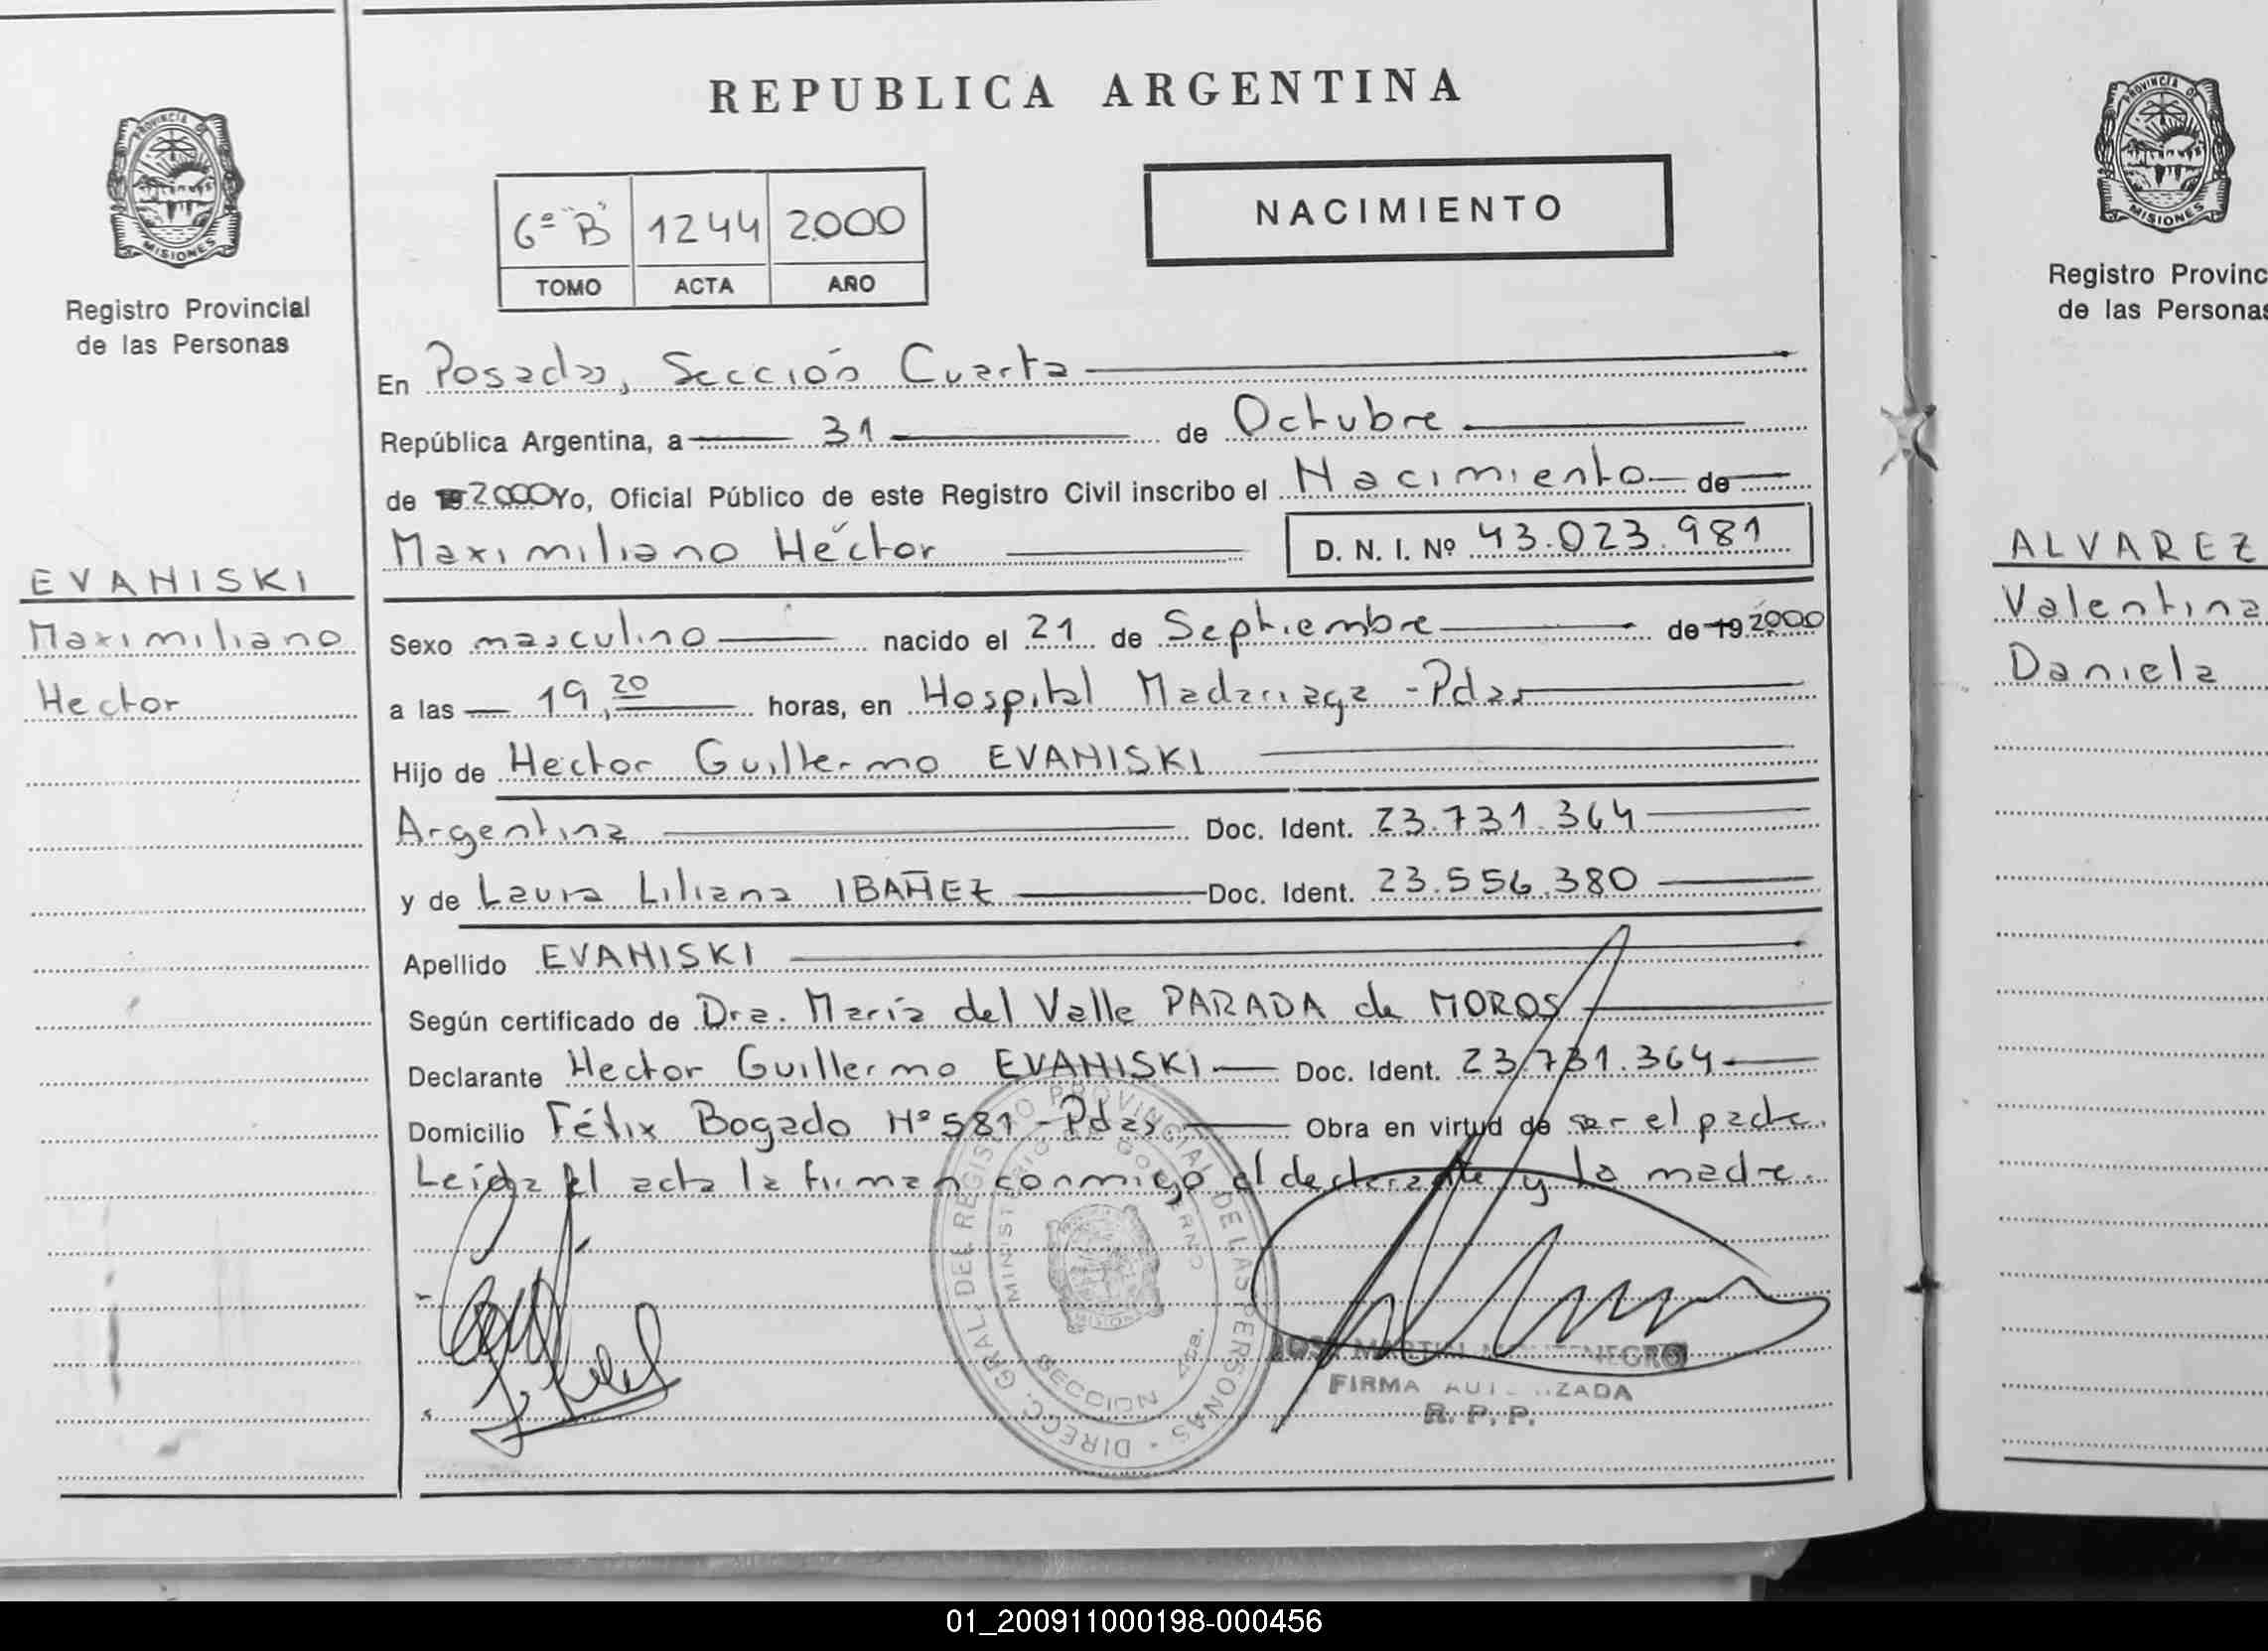 REPUBLICA ARGENTINA
PROVINCIA DE
MISIONES
Registro Provincial
de las Personas
6º "B" 1244 2000
TOMO ACTA AÑO
NACIMIENTO
En Posadas, Sección Cuarta
República Argentina, a 31 de Octubre
de 19 2000 Yo, Oficial Público de este Registro Civil inscribo el Nacimiento de
Maximiliano Héctor D. N. I. Nº 43.023.981
EVANISKI
Maximiliano
Hector
Sexo masculino nacido el 21 de Septiembre de 19 2000
a las 19,20 horas, en Hospital Madariaga - Pdas
Hijo de Hector Guillermo EVANISKI
Argentina Doc. Ident. 23.731.364
y de Laura Liliana IBAÑEZ Doc. Ident. 23.556.380
Apellido EVANISKI
Según certificado de Dra. María del Valle PARADA de MOROS
Declarante Hector Guillermo EVANISKI Doc. Ident. 23.731.364
Domicilio Félix Bogado Nº 581 - Pdas Obra en virtud de ser el padre.
Leída el acta la firman conmigo el declarante y la madre.
DIRECC. GRAL. DEL REGISTRO PROVINCIAL DE LAS PERSONAS
MINISTERIO DE GOBIERNO
SECCION 4ta.
FIRMA AUTORIZADA
R. P. P.
PROVINCIA DE
MISIONES
Registro Provinc
de las Personas
ALVAREZ
Valentina
Daniela
01_200911000198-000456